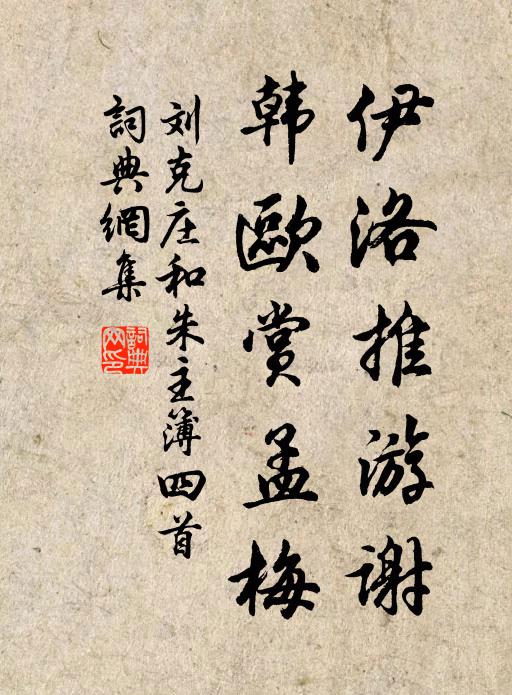 伊洛推游谢
韩歐赏孟梅
刘克庄和朱主簿四首
詞典網集
詞典
网印